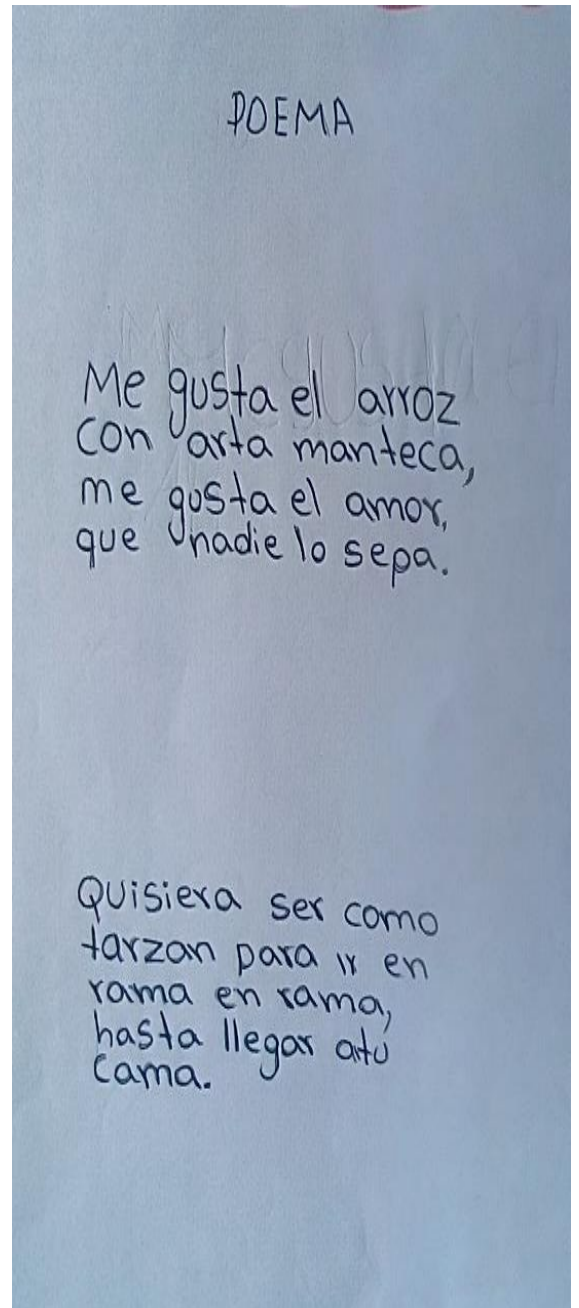 POEMA
Me gusta el arroz
con arta manteca,
me gusta el amor,
que nadie lo sepa.
Quisiera ser como
tarzan para ir en
rama en rama,
hasta llegar atú
cama.